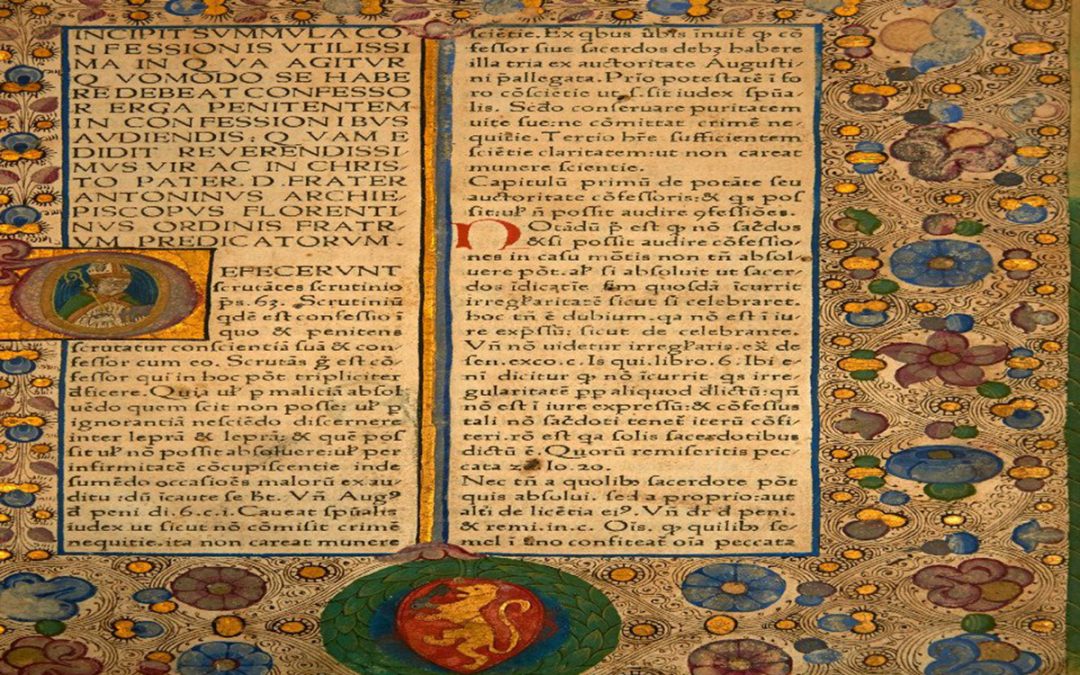 INCIPIT SVMMVLA CO
NFESSIONIS VTILISSI
MA IN Q VA AGITVR
Q VOMODO SE HABE
RE DEBEAT CONFESSO
R ERGA PENITENTEM
IN CONFESSIONIBVS
AVDIENDIS: Q VAM E
DIDIT REVERENDISSI
MVS VIR AC IN CHRIS
TO PATER. D. FRATER
ANTONINVS ARCHIE
PISCOPVS FLORENTI
NVS ORDINIS FRATR
VM PREDICATORVM.
DEFECERVNT
scrutātes scrutinio
p̄s. 63. Scrutiniū
qđē est confessio ī
quo & penitens
scrutatur conscientiā suā & con
fessor cum eo. Scrutās ḡ est cō
fessor qui in hoc pōt tripliciter
dficere. Quia ul' p maliciā absol
uēdo quem scit non posse: ul' p
ignorantiā nesciēdo discernere
inter leprā & leprā: & quē pos
sit ul' nō possit absoluere: ul' per
infirmitatē cōcupiscentie inde
sumēdo occasiōēs malorū ex au
ditu: dū īcaute se h̄t. Vn̄ Aug⁹
d peni di. 6. c. i. Caueat sp̄ualis
iudex ut sicut nō cōmisit crimē
nequitie: ita non careat munere
sciētie. Ex qbus ūbis īnuit̄ ꝙ cō
fessor siue sacerdos debꝫ habere
illa tria ex auctoritate Augusti
ni p̄allegata. Prīo potestatē ī fo
ro cōsciētie ut s. sit iudex sp̄ua
lis. Scđo conseruare puritatem
uite sue: ne cōmittat crimē ne
quitie. Tertio h̄re sufficientem
sciētie claritatem: ut non careat
munere scientie.
Capitulū primū de potāte seu
auctoritate cōfessoris: & qs pos
sit ul' n̄ possit audire ꝯfessiōes.
NOtādū p̄ est ꝙ nō sac̄dos
& si possit audire cōfessio
nes in casu mōtis non tn̄ absol
uere pōt. al' si absoluit ut sacer
dos īdicātiōe sm̄ quosdā īcurrit
irregl'aritatē sicut si celebraret.
hoc tn̄ ē dubium. qa nō est ī iu
re exp̄ssū: sicut de celebrante.
Vn̄ nō uidetur irregl'aris. ex̄ de
sen. exco. c. Is qui. libro. 6. Ibi e
nī dicitur ꝙ nō īcurrit qs irre
gularitatē pp aliquod dlictū: qn̄
nō est ī iure expressū: & cōfessus
tali nō sac̄doti tenet̄ iterū cōfi
teri. rō est qa solis sacerdotibus
dictū ē. Quorū remiseritis pec
cata Io. 20.
Nec tn̄ a quolibꝫ sacerdote pōt
quis absolui. sed a proprio: aut
alt̄i de licētia ei⁹. Vn̄ dr̄ d peni.
& remi. in. c. Oīs. ꝙ quilibꝫ se
mel ī āno confiteat̄ oīa peccata